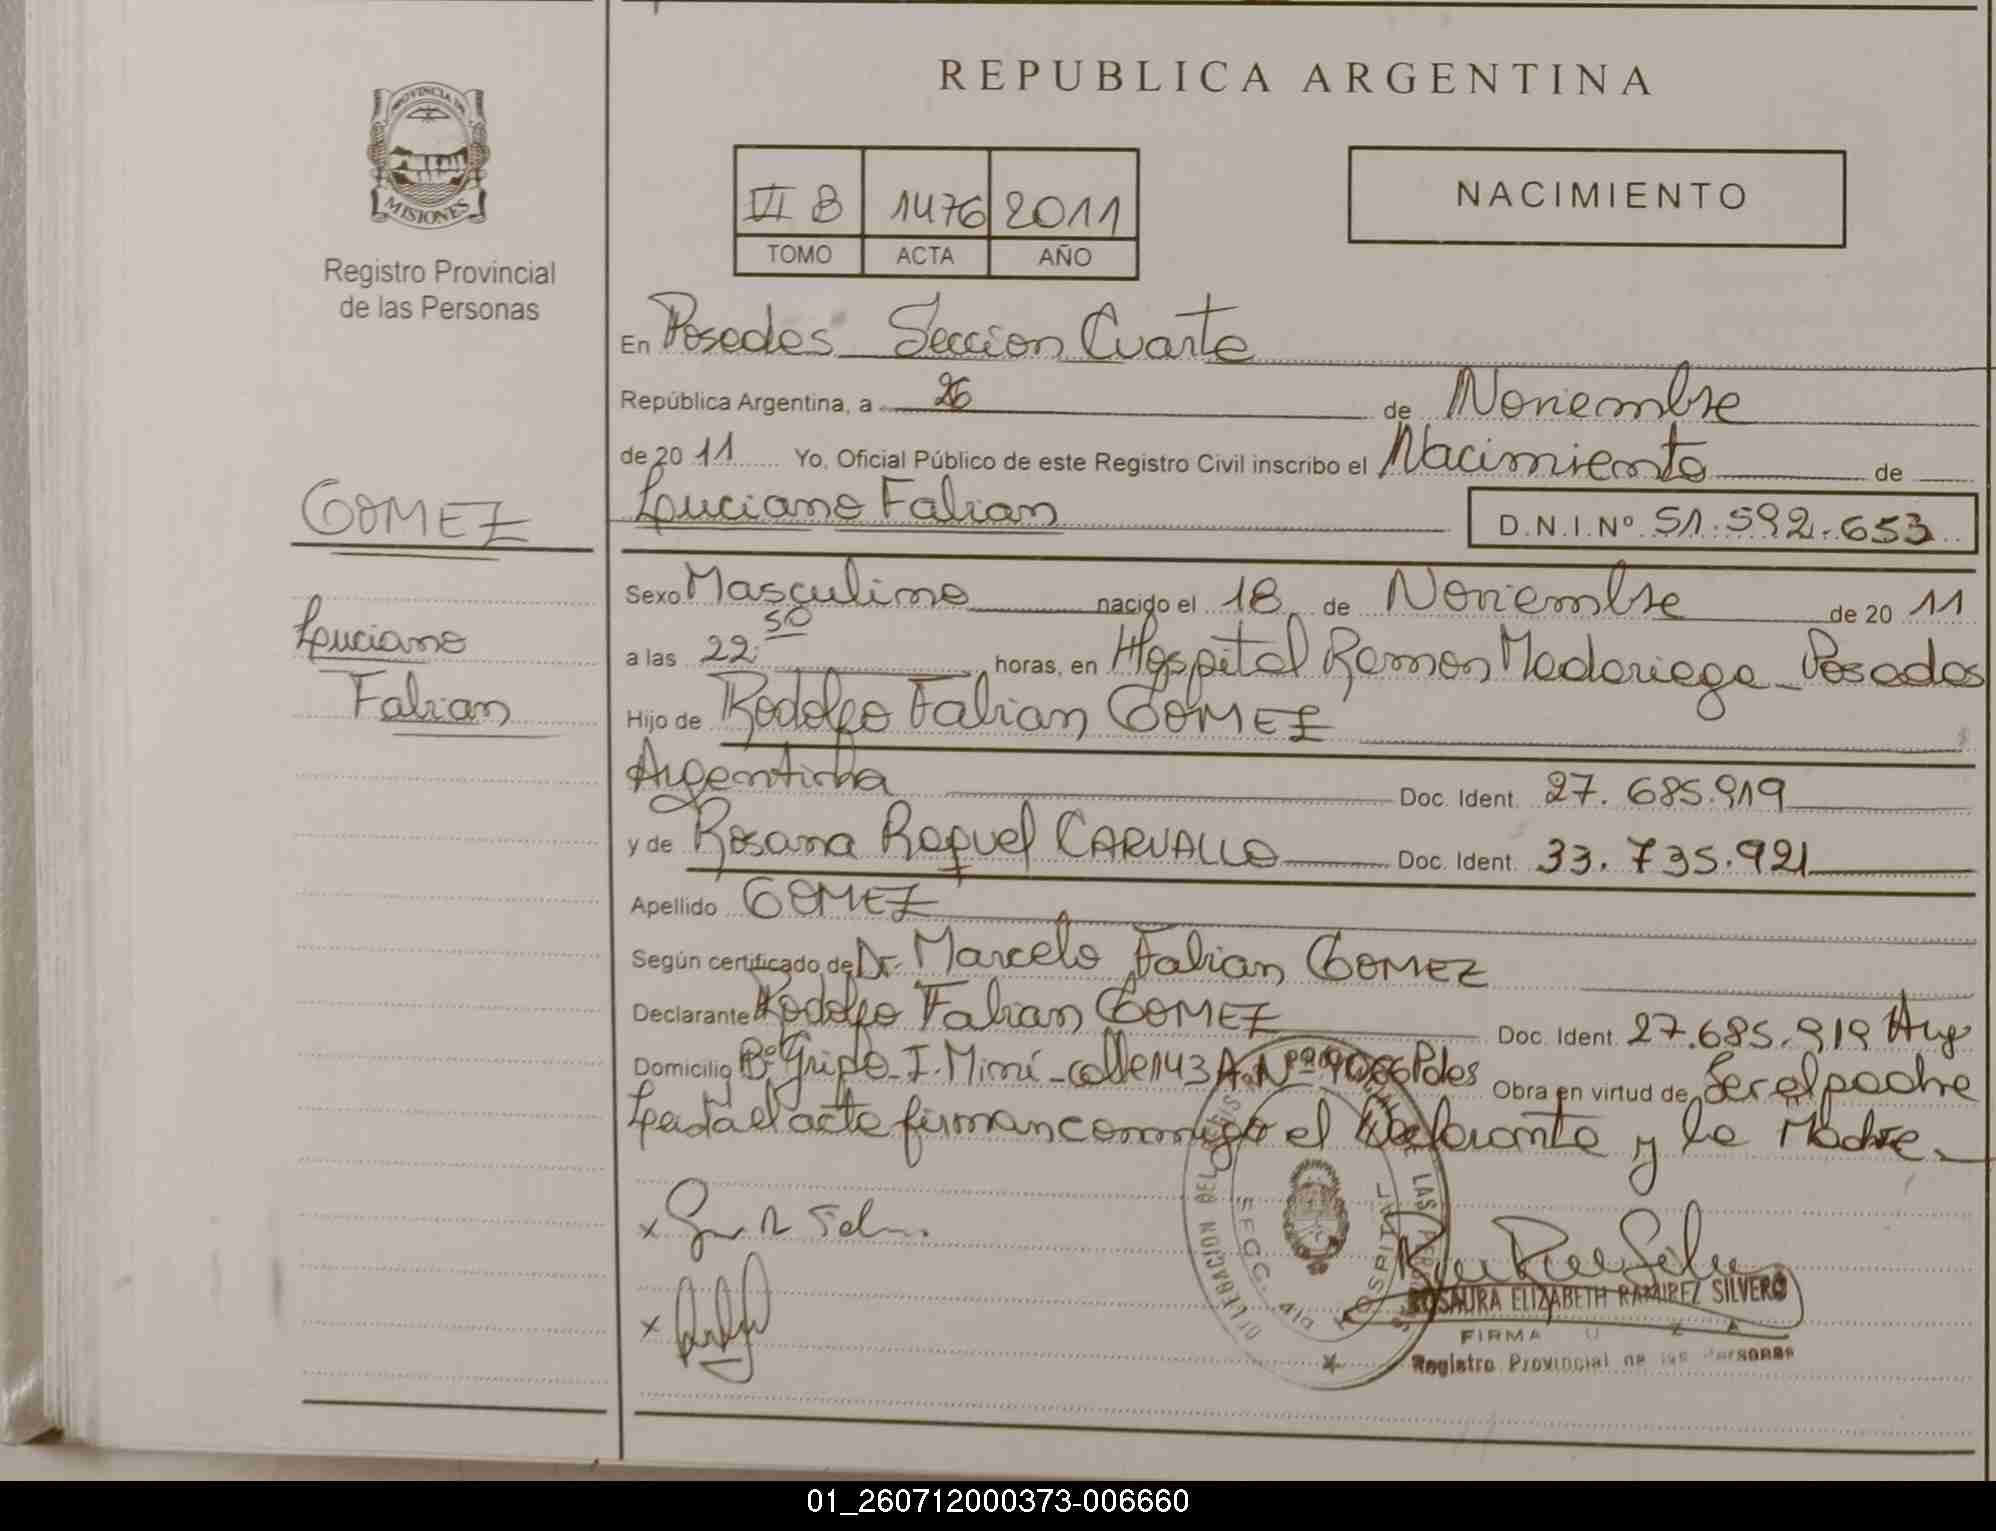 PROVINCIA DE
MISIONES
Registro Provincial
de las Personas
GOMEZ
Luciano
Fabian
REPUBLICA ARGENTINA
VI B 1476 2011
TOMO ACTA AÑO
NACIMIENTO
En Posadas Seccion Cuarta
República Argentina, a 26 de Noviembre
de 2011 Yo, Oficial Público de este Registro Civil inscribo el Nacimiento de
Luciano Fabian D.N.I.Nº 51.592.653
Sexo Masculino nacido el 18 de Noviembre de 2011
a las 22:50 horas, en Hospital Ramon Madariaga - Posadas
Hijo de Rodolfo Fabian GOMEZ
Argentina Doc. Ident. 27.685.919
y de Rosana Raquel CARVALLO Doc. Ident. 33.735.921
Apellido GOMEZ
Según certificado de Dr. Marcelo Fabian GOMEZ
Declarante Rodolfo Fabian GOMEZ Doc. Ident. 27.685.919 Arg
Domicilio Bº Gripo - I. Miní - calle 143 A. Nº 9066 Pdas Obra en virtud de Ser el padre
Leida el acta firman conmigo el Declarante y la Madre.
x
x
DELEGACION DEL LAS
SECC. 4ta HOSPITAL
ROSAURA ELIZABETH RAMIREZ SILVERO
FIRMA
Registro Provincial de las Personas
01_260712000373-006660